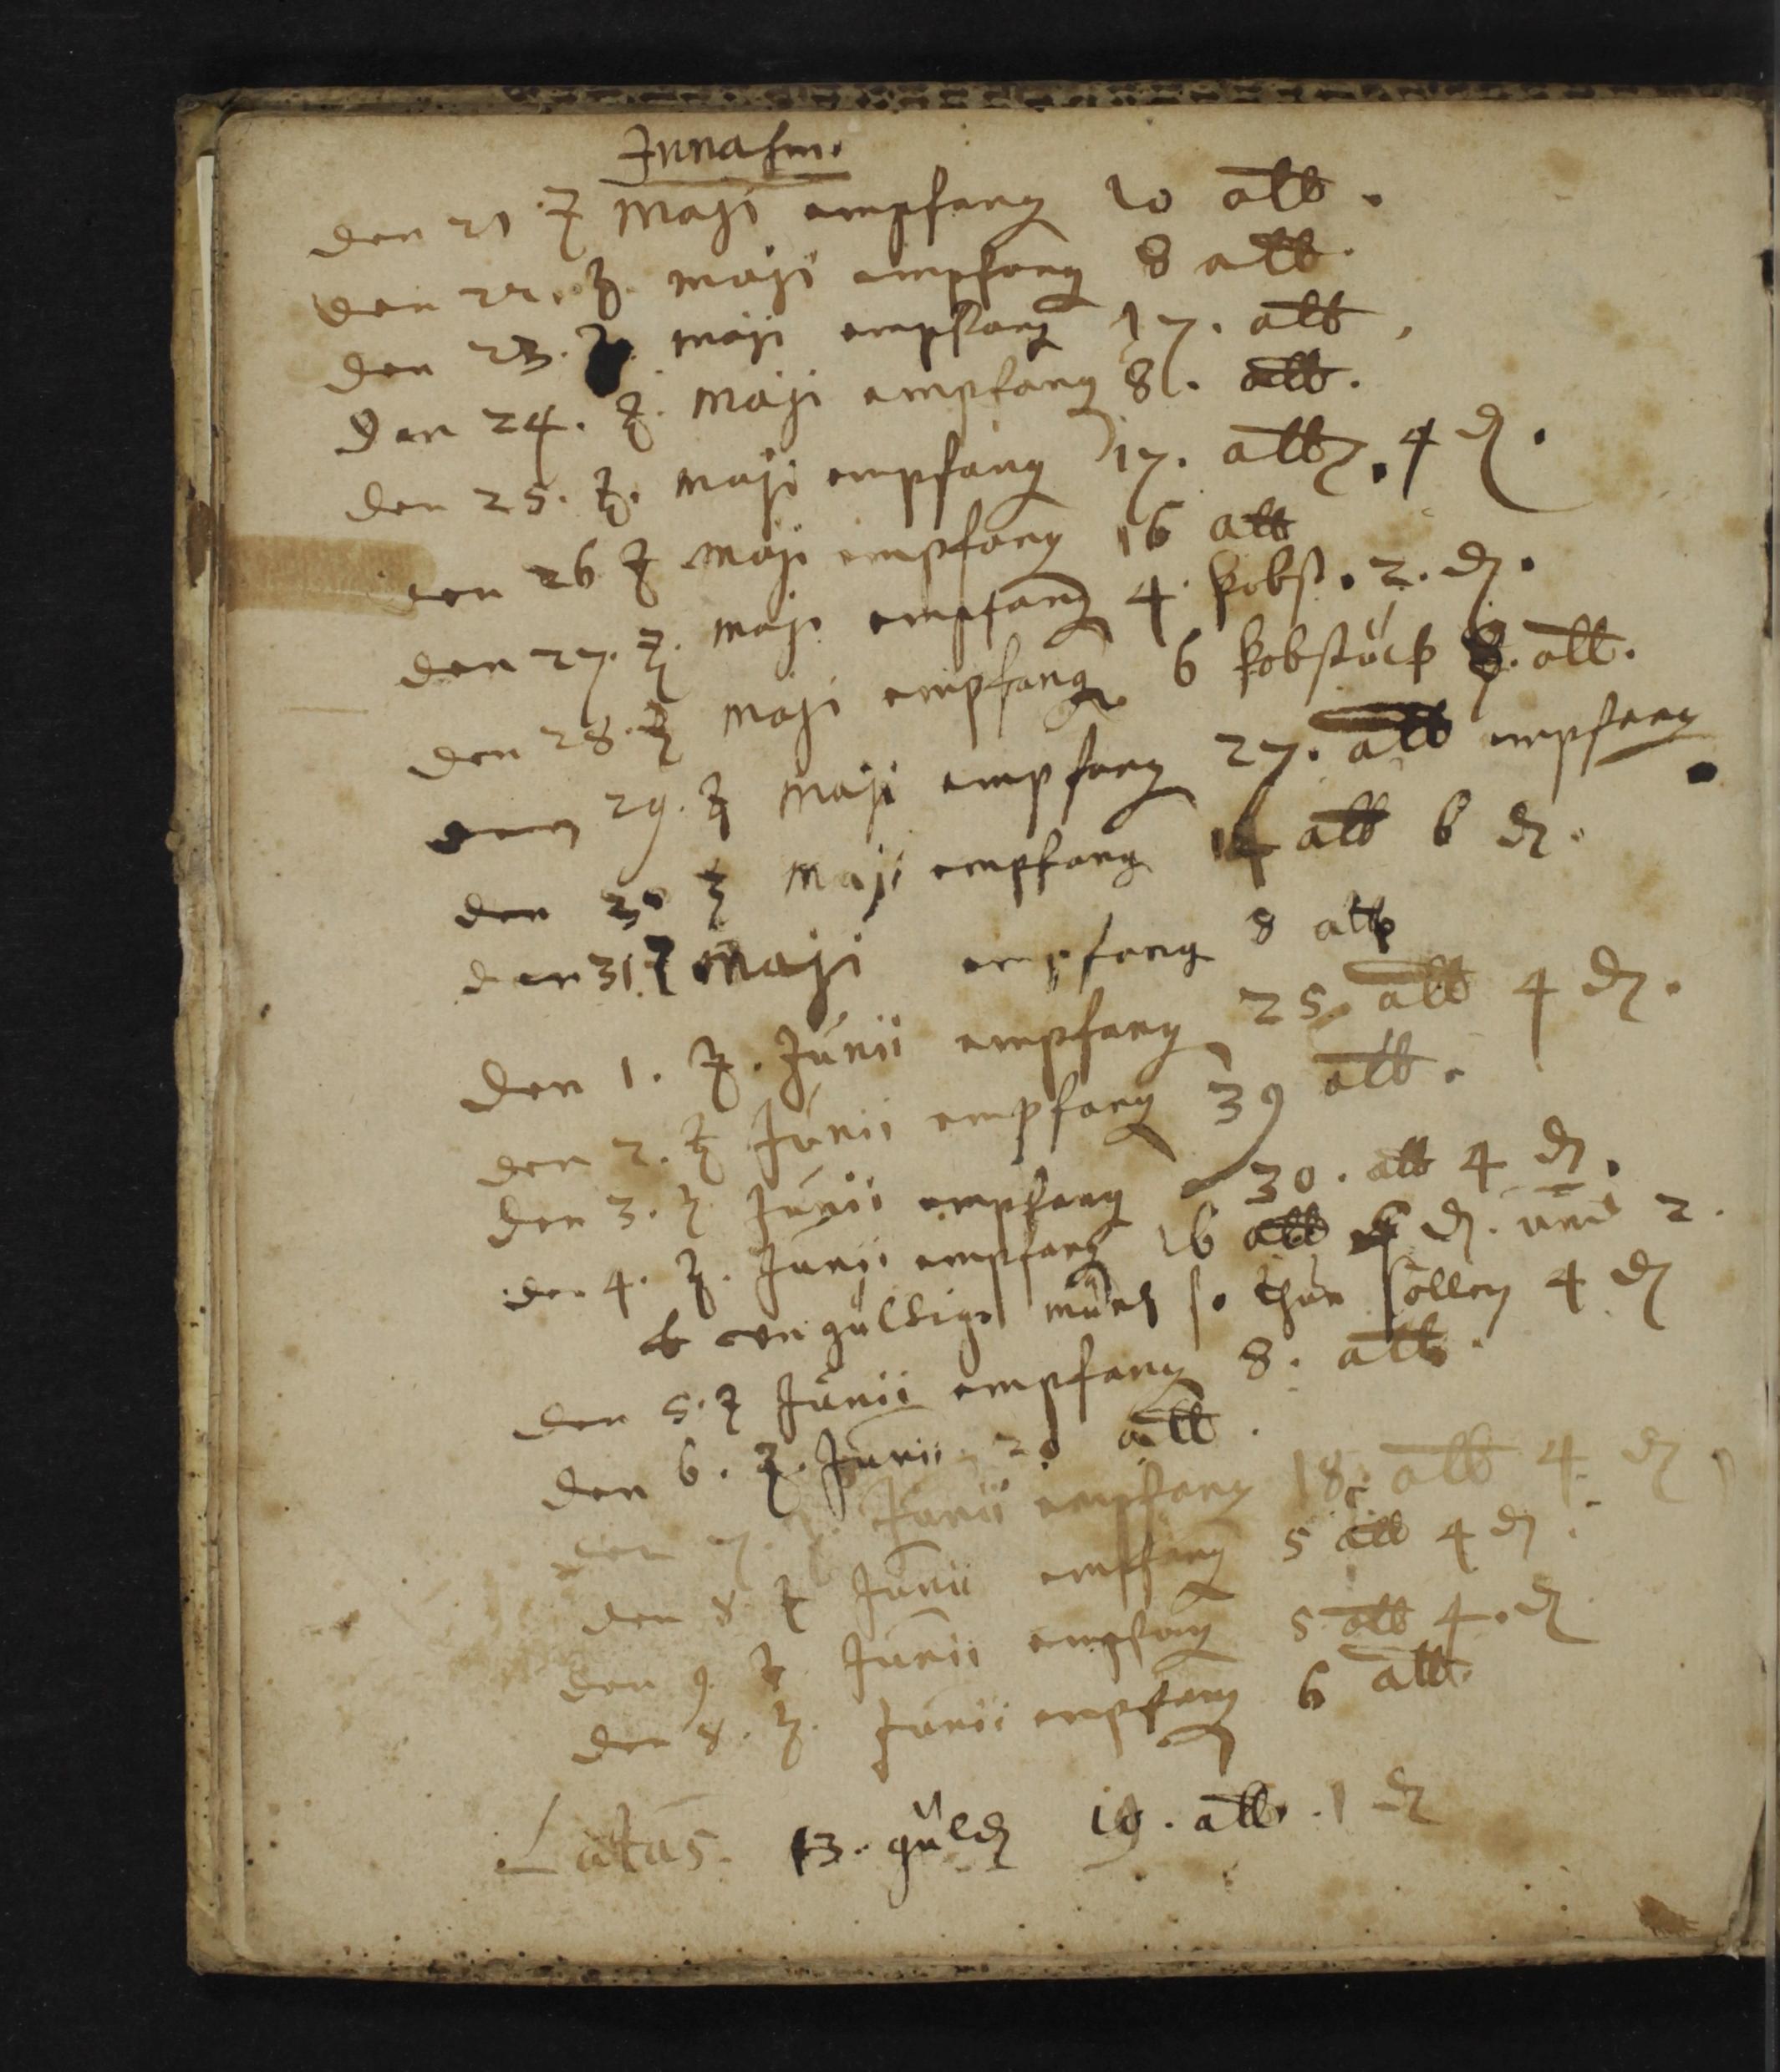 Innahm.
den 21. t Maji empfang 20 alb.
den 22. t. Maji empfang 8 alb.
den 23. t. Maji empfang 17. alb.
Den 24. t. Maji empfang 8. alb.
den 25. t. Maji empfang 17. alb. 4 d.
den 26 t Maji empfang 16 alb
den 27. t. Maji empfang 4. kobst. 2. d.
den 28. t Maji empfang 6 kobstück 8. alb.
den 29. t Maji empfang 27. alb empfang
den 30 t Maji empfang 14 alb 6 d.
den 31 t Maji empfang 8 alb
Den 1. t. Junii empfang 25. alb 4 d.
den 2. t Junii empfang 39 alb.
den 3. t Junii empfang 30. alb 4 d.
den 4. t. Junii empfang 16 alb d. und 2.
ungültige müntz so thun sollen 4 d
den 5. t Junii empfang 8. alb.
den 6. t. Junii 20 alb.
den 7. t. Junii empfang 18. alb 4 d
den 8 t Junii empfang 5 alb 4 d.
den 9. t Junii empfang 5 alb 4. d
den 8. t. Junii empfang 6 alb.
Latus. 13. güld 19. alb. 1 d